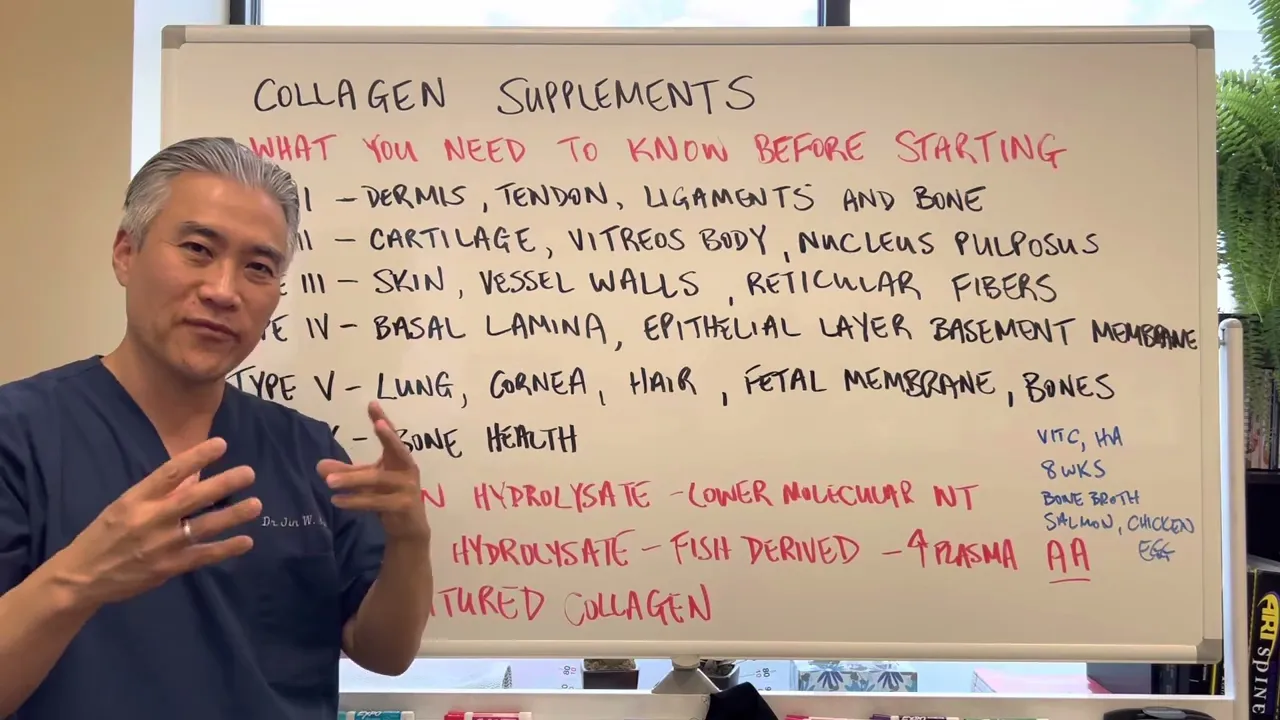 COLLAGEN SUPPLEMENTS
WHAT YOU NEED TO KNOW BEFORE STARTING
I - DERMIS, TENDON, LIGAMENTS AND BONE
II - CARTILAGE, VITREOS BODY, NUCLEUS PULPOSUS
E III - SKIN, VESSEL WALLS, RETICULAR FIBERS
PE IV - BASAL LAMINA, EPITHELIAL LAYER BASEMENT MEMBRANE
TYPE V - LUNG, CORNEA, HAIR, FETAL MEMBRANE, BONES
- BONE HEALTH
VIT C, HA
8 WKS
BONE BROTH
SALMON, CHICKEN
EGG
N HYDROLYSATE - LOWER MOLECULAR WT
HYDROLYSATE - FISH DERIVED - ↑ PLASMA AA
TURED COLLAGEN
Dr. Jin W.
ARI SPINE
EXPO